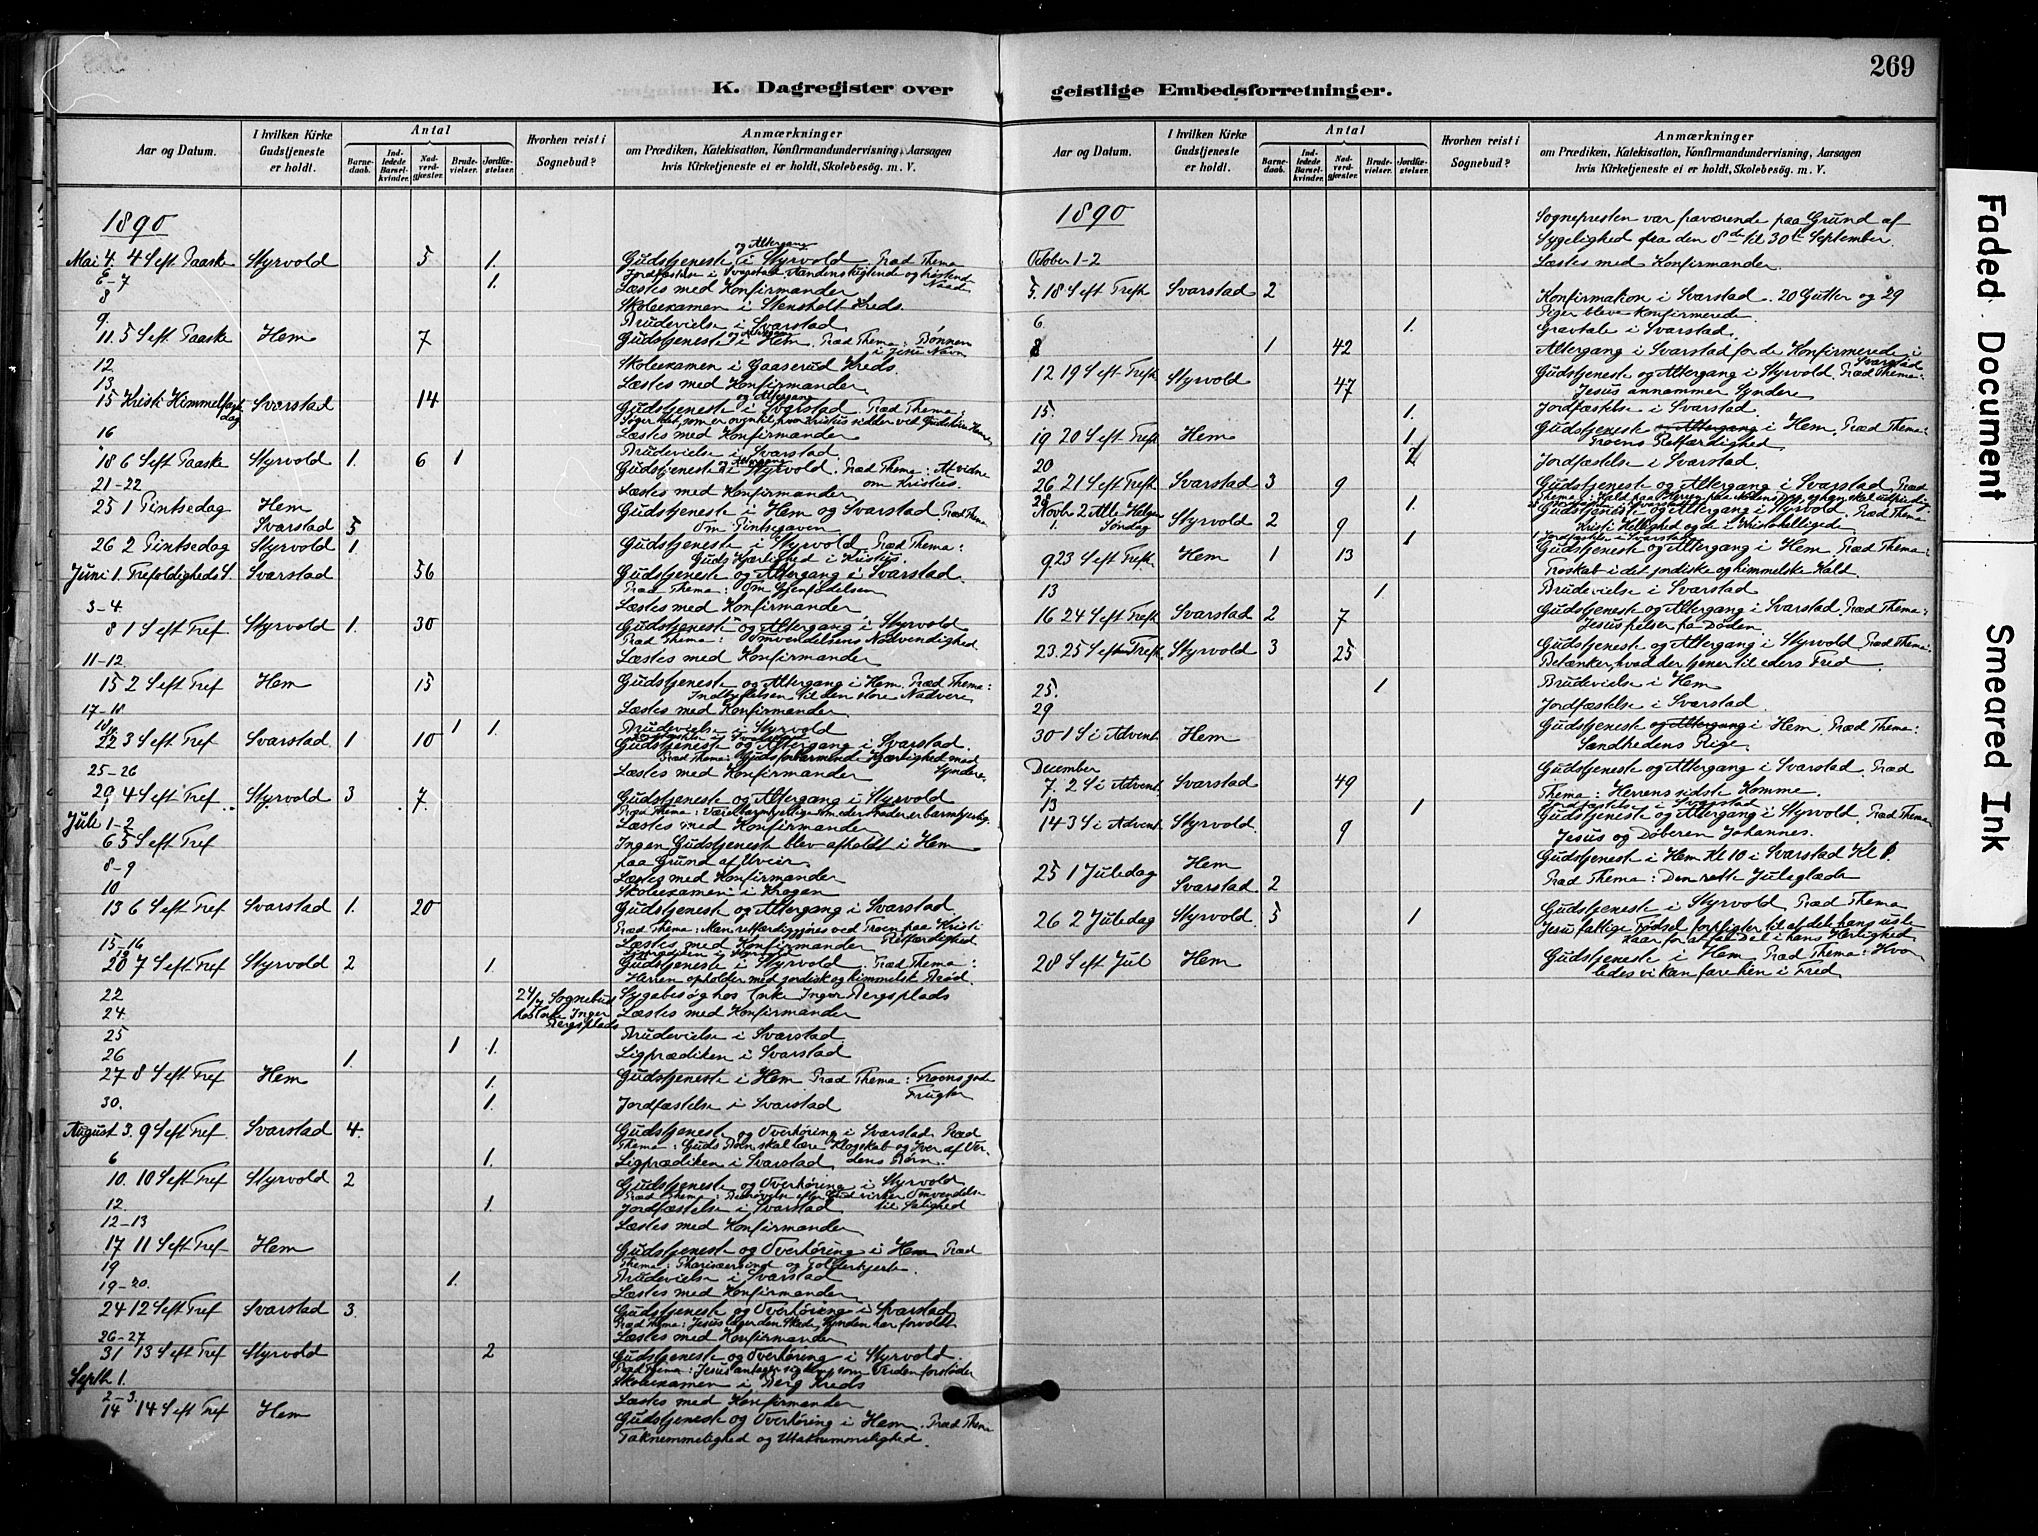 269
K. Dagregister over geistlige Embedsforretninger.
Aar og Datum.
I hvilken Kirke Gudstjeneste er holdt.
Antal
Barnedaab.
Indledede Barselkvinder.
Nadverdgjæster.
Brudevielser.
Jordfæstelser.
Hvorhen reist i Sognebud?
Anmærkninger
om Prædiken, Katekisation, Konfirmandundervisning, Aarsagen
hvis Kirketjeneste ei er holdt, Skolebesög. m. V.
1890
og Altergang
Mai 4. 4 S eft. Paaske Styrvold 5 1. Gudstjeneste i Styrvold Præd Thema
6-7 1. Læstes med Konfirmander
8 Skoleexamen i Stensholt Kreds.
9. Brudevielse i Svarstad
11. 5 S eft. Paaske Hem 7 Gudstjeneste i Hem. Præd Thema: Bønnen i Jesu Navn
12 Skoleexamen i Gaaserud Kreds.
13 Læstes med Konfirmander
og Altergang
15 Kristi Himmelfartsdag Svarstad 14 Gudstjeneste i Svarstad. Præd Thema:
16 Læstes med Konfirmander
Brudevielse i Svarstad
18 6 S eft Paaske Styrvold 1. 6 1 Gudstjeneste i Styrvold. Præd Thema: At vidne om Kristus.
21-22 Læstes med Konfirmander
25 1 Pintsedag Hem Gudstjeneste i Hem og Svarstad Præd Thema
Svarstad 5 Om Pintsegaven
26 2 Pintsedag Styrvold 1. Gudstjeneste i Styrvold. Præd Thema:
Guds Kjærlighed i Kristus.
Juni 1. Trefoldigheds S. Svarstad 56 Gudstjeneste og Altergang i Svarstad.
Præd Thema: Om Gjenfødelsen
3-4. Læstes med Konfirmander
8 1 S eft Tref Styrvold 1. 30 Gudstjeneste og Altergang i Styrvold
Præd Thema: Omvendelsens Nødvendighed
11-12. Læstes med Konfirmander
15 2 S eft Tref Hem 15 Gudstjeneste og Altergang i Hem. Præd Thema:
Indbydelsen til den store Nadvere
17-18 Læstes med Konfirmander
1 1 Brudevielse i Styrvold
22 3 S eft Tref Svarstad 1 10 Gudstjeneste og Altergang i Svarstad.
Præd Thema: Guds forbarmende Kjærlighed mod Syndere.
25-26 Læstes med Konfirmander
29 4 S eft Tref Styrvold 3 7. Gudstjeneste og Altergang i Styrvold
Juli 1-2 Læstes med Konfirmander
6 5 S eft Tref Ingen Gudstjeneste blev afholdt i Hem
paa Grund af Uveir.
8-9 Læstes med Konfirmander
10 Skoleexamen i Krogen
13 6 S eft Tref Svarstad 1. 20 Gudstjeneste og Altergang i Svarstad
Præd Thema: Man retfærdiggjøres ved Troen paa Kristi Retfærdighed
15-16 Læstes med Konfirmander
20 7 S eft Tref Styrvold 2 1. Gudstjeneste i Styrvold. Præd Thema:
Herren opholder med jordisk og himmelsk Brød.
22 24/7 Sognebud Sygebesøg hos Enke Inger Bergsplads
24. hos Enke Inger Bergsplads Læstes med Konfirmander
25 Brudevielse i Svarstad
26 1. 1 1. Ligprædiken i Svarstad
27 8 S eft Tref Hem 1. Gudstjeneste i Hem Præd Thema: Troens gode Frugter
30. 1. Jordfæstelse i Svarstad
August 3. 9 S eft Tref. Svarstad 4. Gudstjeneste og Overhøring i Svarstad. Præd
Thema: Guds Børn skal lære Klogskab og Iver af Verdens Børn.
6 1. Ligprædiken i Svarstad
10. 10 S eft Tref Styrvold 2 Gudstjeneste og Overhøring i Styrvold
Præd Thema: Bedrøvelse efter Gud virker Omvendelse til Salighed
12 1. Jordfæstelse i Svarstad
12-13 Læstes med Konfirmander
17 11 S eft Tref Hem Gudstjeneste og Overhøring i Hem Præd
Thema: Pharisæersind og Tolderhjerte.
19 Brudevielse i Svarstad
19-20. 1. Læstes med Konfirmander
24 12 S eft Tref Svarstad 3. Gudstjeneste og Overhøring i Svarstad
Præd Thema: Jesus læger den Skade, Synden har forvoldt
26-27 Læstes med Konfirmander
31 13 S eft Tref Styrvold 2 Gudstjeneste og Overhøring i Styrvold.
Septb 1. Skoleexamen i Berg Kreds
2-3. Læstes med Konfirmander
14 14 S eft Tref Hem Gudstjeneste og Overhøring i Hem. Præd Thema
Taknemmelighed og Utaknemmelighed.
Aar og Datum.
I hvilken Kirke Gudstjeneste er holdt.
Antal
Barnedaab.
Indledede Barselkvinder.
Nadverdgjæster.
Brudevielser.
Jordfæstelser.
Hvorhen reist i Sognebud?
Anmærkninger
om Prædiken, Katekisation, Konfirmandundervisning, Aarsagen
hvis Kirketjeneste ei er holdt, Skolebesög. m. V.
1890
Sognepresten var fraværende paa Grund af
Sygelighed fra den 8de til 30te September.
October 1-2 Læstes med Konfirmander.
5. 18 S eft Trefh Svarstad 2 Konfirmation i Svarstad. 20 Gutter og 29
Piger bleve konfirmerede.
6. 1. Gravtale i Svarstad.
8 1 42 Altergang i Svarstad for de Konfirmerede i Svarstad
12 19 S eft Trefh Styrvold 47 Gudstjeneste og Altergang i Styrvold. Præd Thema:
Jesus annammer Syndere.
15. 1. Jordfæstelse i Svarstad.
19 20 S eft Trefh Hem 1. Gudstjeneste og Altergang i Hem. Præd Thema:
Troens Retfærdighed
20 2 Jordfæstelse i Svarstad.
26 21 S eft Trefh Svarstad 3 9 Gudstjeneste og Altergang i Svarstad Præd
Novbr 2 Alle Helgens Søndag Styrvold 2 9 1. Gudstjeneste og Altergang i Styrvold. Præd Thema
Kristi Hellighed og de i Kristo hellige
1 Jordfæstelse i Svarstad
9 23 S eft Trefh. Hem 1 13 Gudstjeneste og Altergang i Hem Præd Thema:
Troskab i det jordiske og himmelske Kald.
13 1. Brudevielse i Svarstad
16 24 S eft Trefh Svarstad 2 7 Gudstjeneste og Altergang i Svarstad. Præd Thema:
Jesus frelser fra Døden
23. 25 S eft Trefh. Styrvold 3 25 Gudstjeneste og Altergang i Styrvold Præd Thema:
Betænker, hvad der tjener til eders Fred.
25. 1 Brudevielse i Hem
29 Jordfæstelse i Svarstad.
30 1 S i Advent Hem Gudstjeneste og Altergang i Hem. Præd Thema:
Sandhedens Rige.
December
7. 2 S i Advent. Svarstad 49 Gudstjeneste og Altergang i Svarstad. Præd
Thema: Herrens sidste Komme.
13 1 Jordfæstelse i Svarstad
14 3 S i Advent. Styrvold. 9 Gudstjeneste og Altergang i Styrvold. Præd Thema
Jesus og Døberen Johannes.
25 1 Juledag Hem Gudstjeneste i Hem Kl 10 i Svarstad Kl 1.
Svarstad 2 Præd Thema: Den rette Juleglæde
26 2 Juledag Styrvold. 5 1 Gudstjeneste i Styrvold Præd Thema
28 S eft Jul Hem Gudstjeneste i Hem Præd Thema: Hvorledes vi kan fare hen i Fred
Faded Document
Smeared Ink